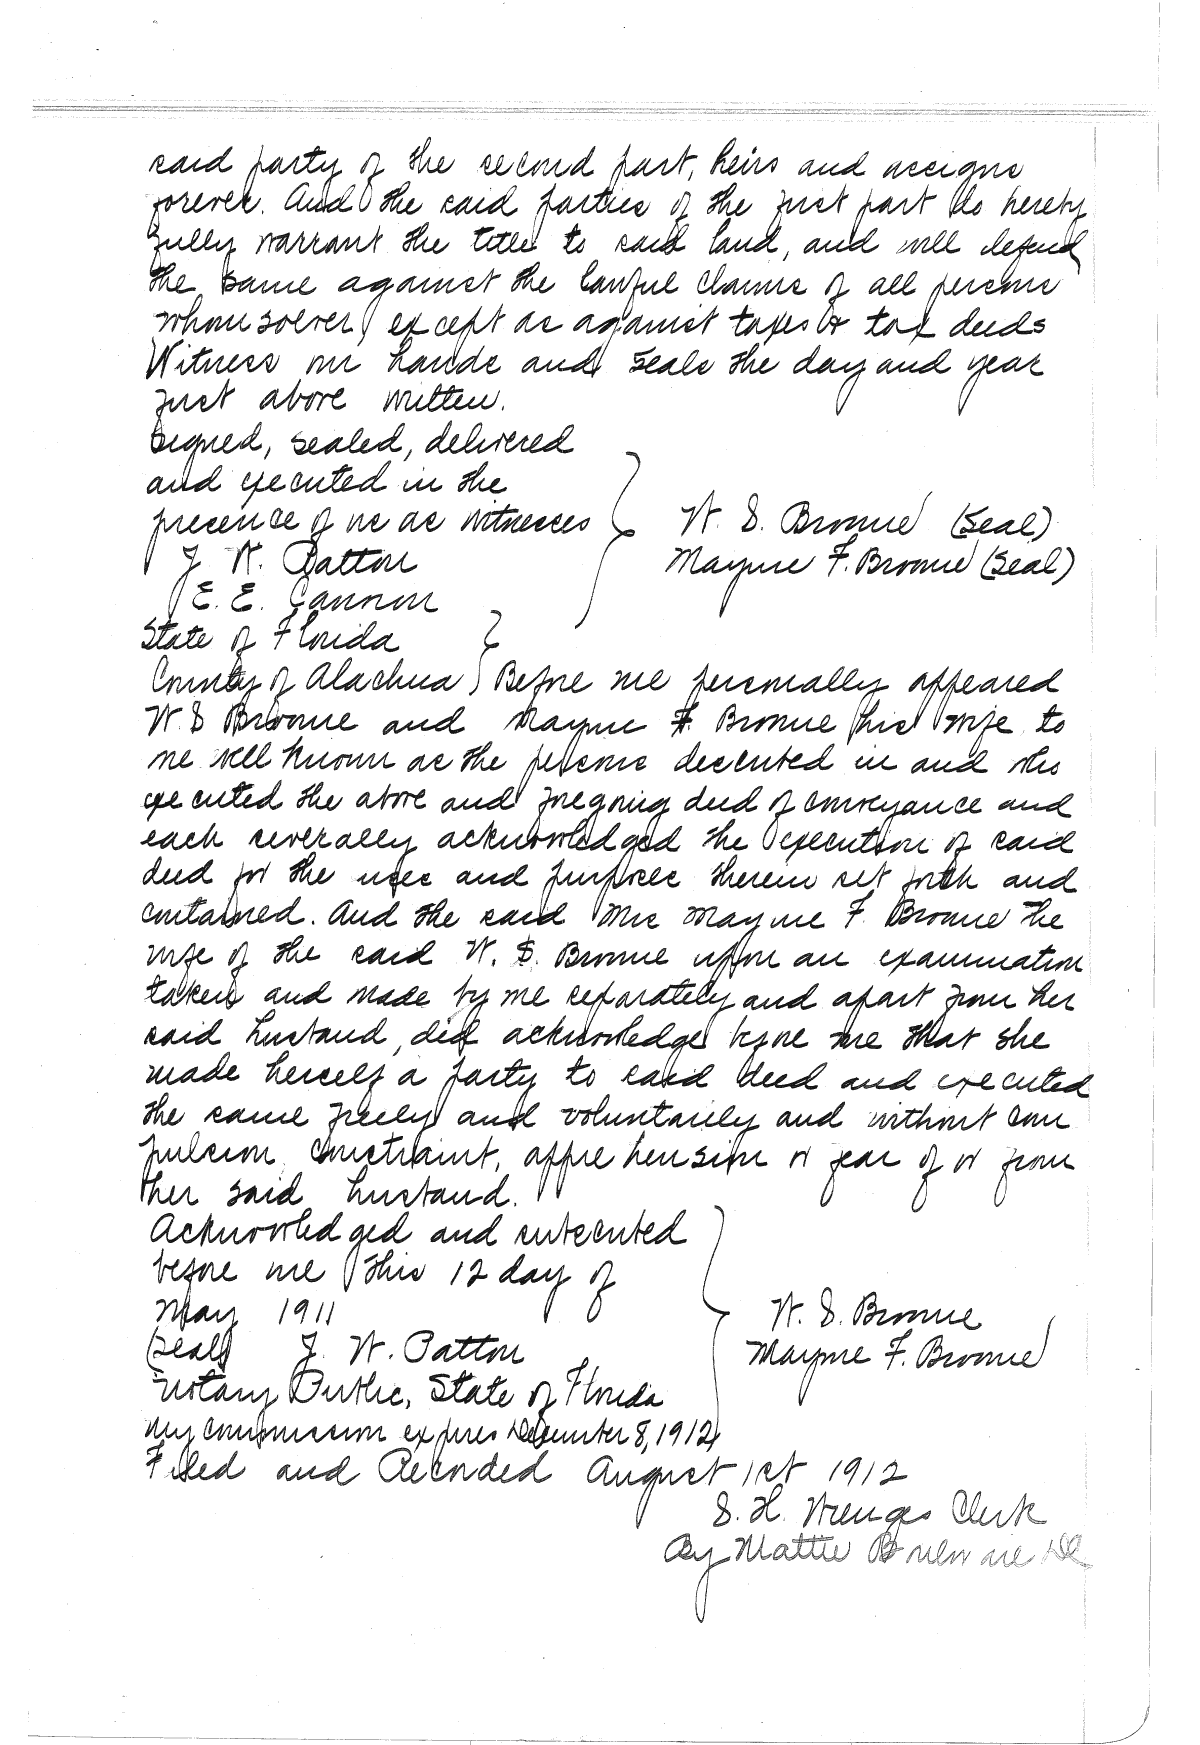 said party of the second part, heirs and assigns
forever. And the said parties of the first part do hereby
fully warrant the title to said land, and will defend
the same against the lawful claims of all persons
whomsoever, except as against taxes or tax deeds
Witness our hands and seals the day and year
first above written.
Signed, sealed, delivered
and executed in the
presence of us as witnesses
W. S. Broome (Seal)
J. W. Patton
Mayme F. Broome (Seal)
E. E. Cannon
State of Florida
County of Alachua } Before me personally appeared
W. S Broome and Mayme F. Broome his wife to
me well known as the persons described in and who
executed the above and foregoing deed of conveyance and
each severally acknowledged the execution of said
deed for the uses and purposes therein set forth and
contained. And the said Mrs Mayme F. Broome the
wife of the said W. S. Broome upon an examination
taken and made by me separately and apart from her
said husband, did acknowledge before me that she
made herself a party to said deed and executed
the same freely and voluntarily and without com
pulsion, constraint, apprehension or fear of or from
her said husband.
Acknowledged and subscribed
before me this 12 day of
May 1911
W. S. Broome
(Seal) J. W. Patton
Mayme F. Broome
Notary Public, State of Florida
My commission expires December 8, 1912
Filed and Recorded August 1st 1912
S. H. Wienges Clerk
By Mattie DC